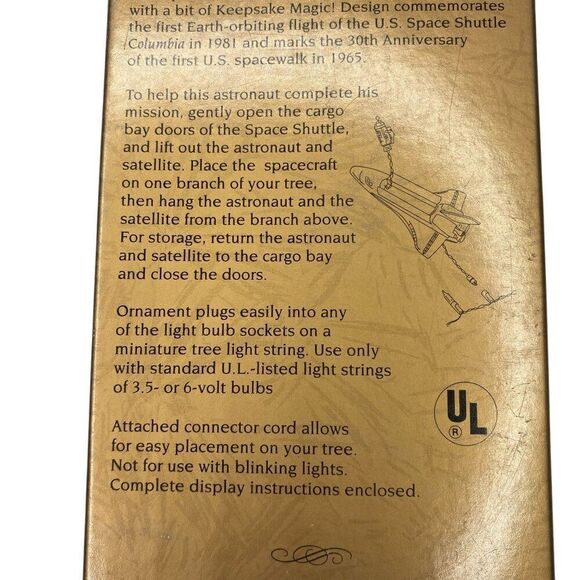 with a bit of Keepsake Magic! Design commemorates
the first Earth-orbiting flight of the U.S. Space Shuttle
Columbia in 1981 and marks the 30th Anniversary
of the first U.S. spacewalk in 1965.
To help this astronaut complete his
mission, gently open the cargo
bay doors of the Space Shuttle,
and lift out the astronaut and
satellite. Place the spacecraft
on one branch of your tree,
then hang the astronaut and the
satellite from the branch above.
For storage, return the astronaut
and satellite to the cargo bay
and close the doors.
Ornament plugs easily into any
of the light bulb sockets on a
miniature tree light string. Use only
with standard U.L.-listed light strings
of 3.5- or 6-volt bulbs
UL
®
Attached connector cord allows
for easy placement on your tree.
Not for use with blinking lights.
Complete display instructions enclosed.